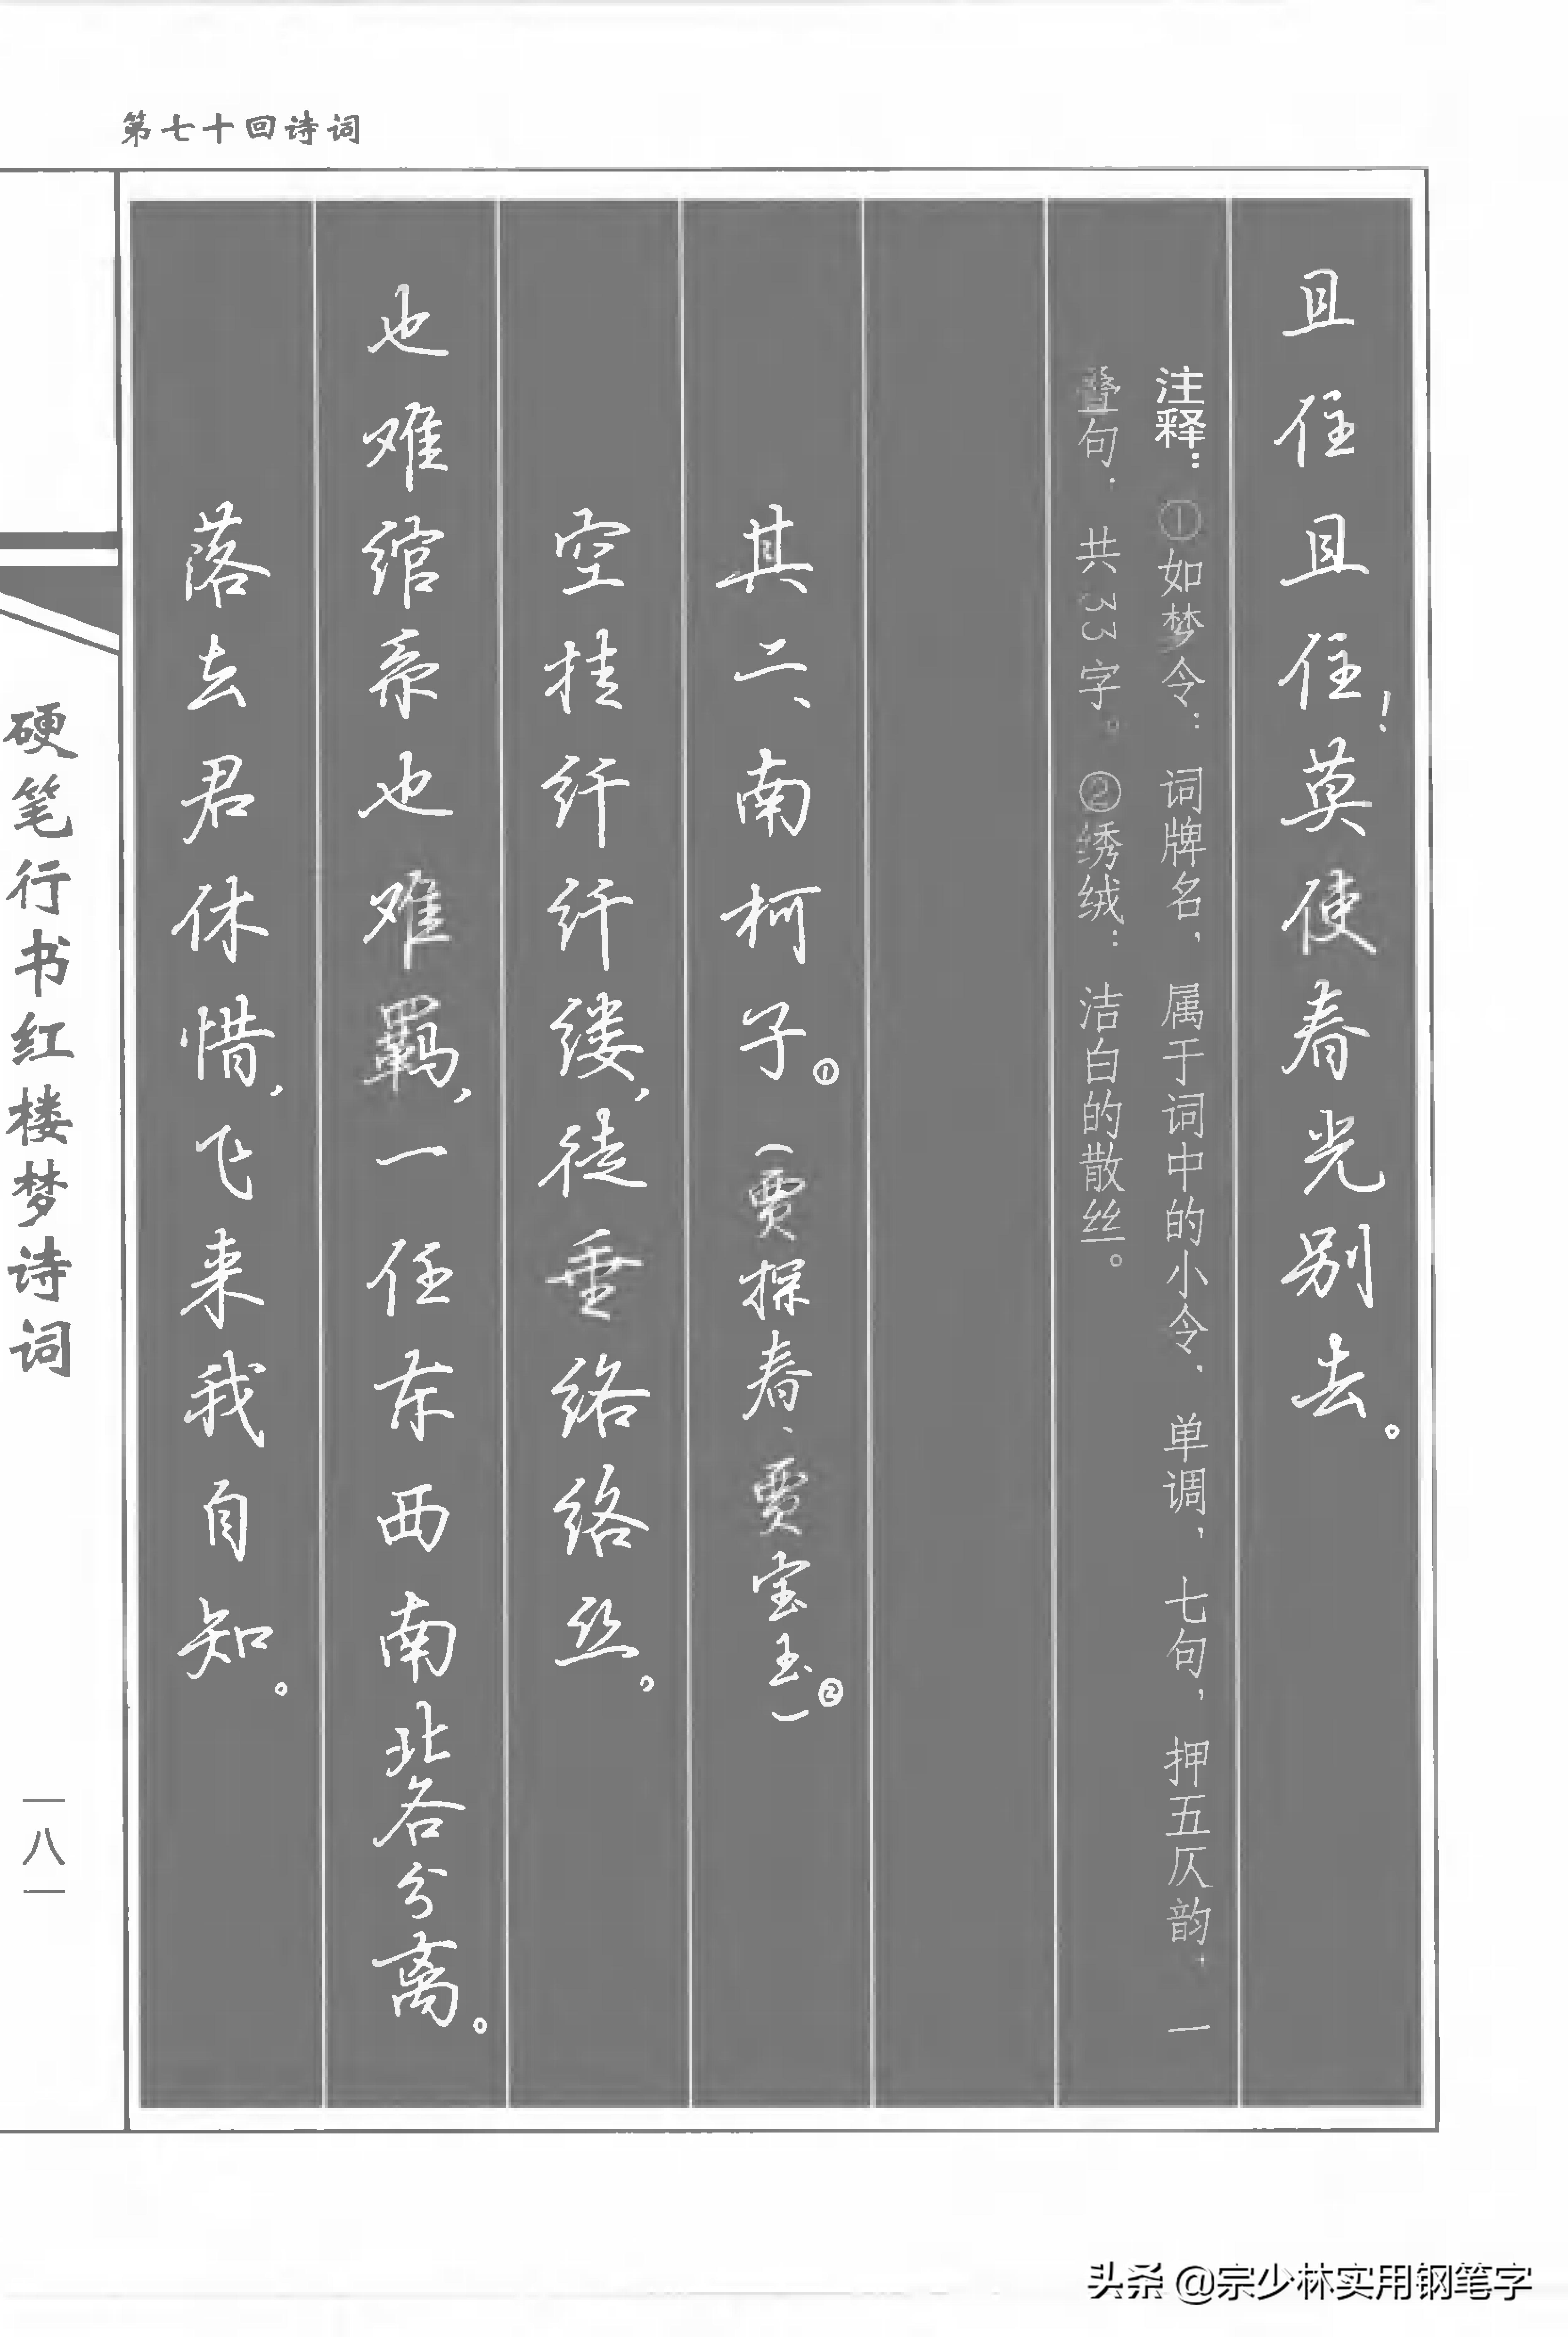 第七十回诗词
且住且住！莫使春光别去。
注释：①如梦令：词牌名，属于词中的小令、单调，七句，押五仄韵，一
叠句，共33字。②绣绒：洁白的散丝。
其二、南柯子①（贾探春、贾宝玉）②
空挂纤纤缕，徒垂络络丝。
也难绾系也难羁，一任东西南北各分离。
落去君休惜，飞来我自知。
硬笔行书红楼梦诗词
一八一
头条 @宗少林实用钢笔字